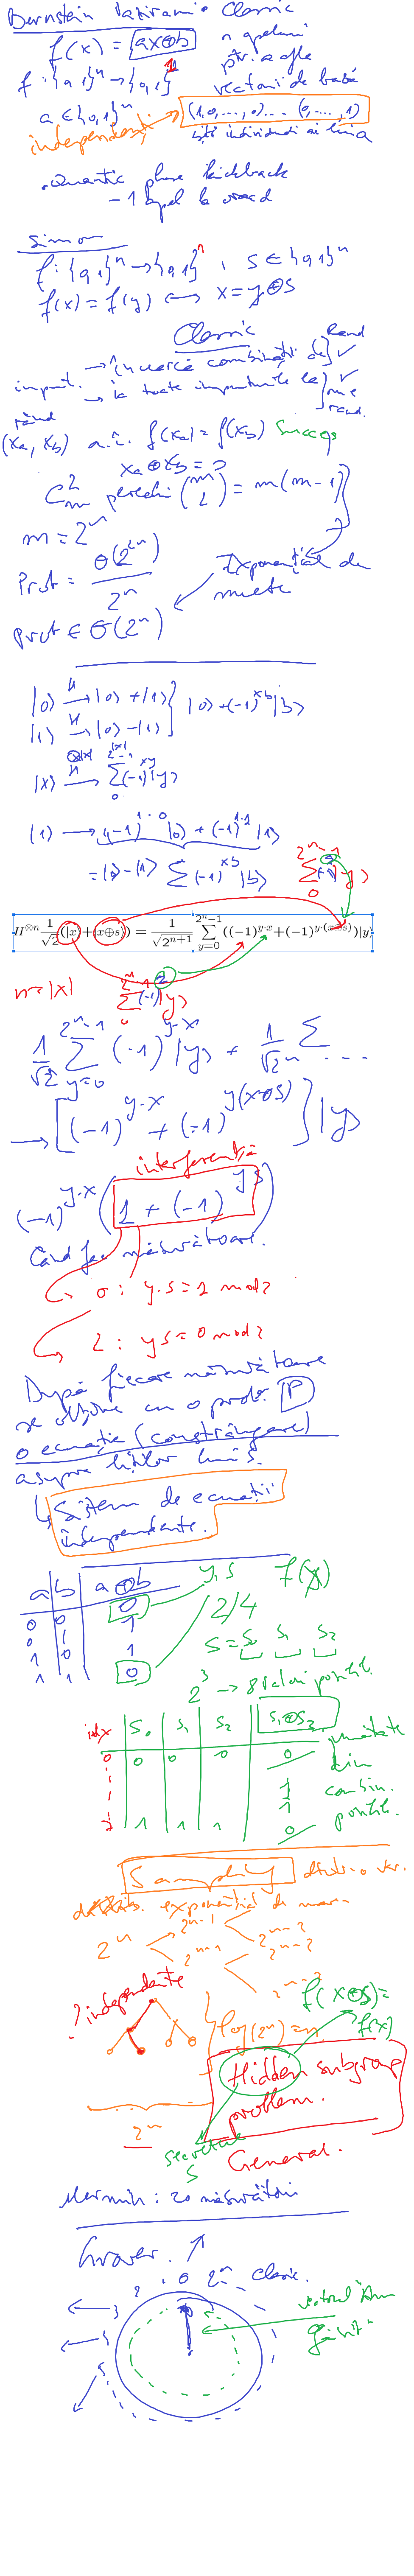 Bernstein Vazirani • Classic
f(x) = ax⊕b n apeluri
f: {0,1}ⁿ → {0,1}¹ ptr. a afle
vectorii de bază
a ∈ {0,1}ⁿ (1,0,...,0)... (0,...,1)
independenți biți individuali ai lui a
• Quantic phase kickback
– 1 apel la oracol
Simon
f: {0,1}ⁿ → {0,1}ⁿ, s ∈ {0,1}ⁿ
f(x) = f(y) ⟷ x = y⊕s
Classic
→ încearcă combinații de Rand ✓
input.
→ ia toate inputurile la ✓
rând
(xₐ, x_b) a.î. f(xₐ) = f(x_b) Succes
xₐ⊕x_b = s
C²ₘ perechi (m 2) = m(m-1)
m = 2ⁿ
Prob = Θ(2²ⁿ) / 2ⁿ
Exponențial de multe
prob ∈ Θ(2ⁿ)
|0⟩ →H |0⟩ + |1⟩
|0⟩ + (-1)^xb |b⟩
|1⟩ →H |0⟩ - |1⟩
|x⟩ →H⊗|x| Σ (-1)^xy |y⟩
|1⟩ → (-1)^1·0 |0⟩ + (-1)^1·1 |1⟩
= |0⟩ - |1⟩ Σ (-1)^xb |b⟩
H^⊗n 1/√2 (|x⟩ + |x⊕s⟩) = 1/√2ⁿ⁺¹ Σ_{y=0}^{2ⁿ-1} ((-1)^y·x + (-1)^y·(x⊕s))|y⟩
n = |x|
1/√2 Σ_{y=0}^{2ⁿ-1} (-1)^y·x |y⟩ + 1/√2ⁿ Σ ...
→ [(-1)^y·x + (-1)^y(x⊕s)] |y⟩
interferență
(-1)^y·x (1 + (-1)^ys)
Când fac măsurătoare.
0: y·s = 1 mod 2
2: ys = 0 mod 2
După fiecare măsurătoare
se obține cu o prob. P
o ecuație (constrângere)
asupra biților lui s.
↳ Sistem de ecuații
independente.
a b a⊕b y,s f(x)
0 0 0
0 1 1 2/4
1 0 1 s = s₀ s₁ s₂
1 1 0
2³ → 8 valori posibile
idx s₀ s₁ s₂ s₁⊕s₂
jumătate
0 0 0 0 0 din
1 combin.
1 posibile.
7 1 1 1 0
Sampling dintr-o var.
exponențial de mare
2ⁿ 2ⁿ⁻¹ 2ⁿ⁻²
2ⁿ⁻¹ 2ⁿ⁻²
? independente
f(x⊕s) =
f(x)
log(2ⁿ) = n
Hidden subgroup
problem.
2ⁿ
secretul
s
General.
Mermin: 20 măsurători
Grover. ↗
2ⁿ clasic.